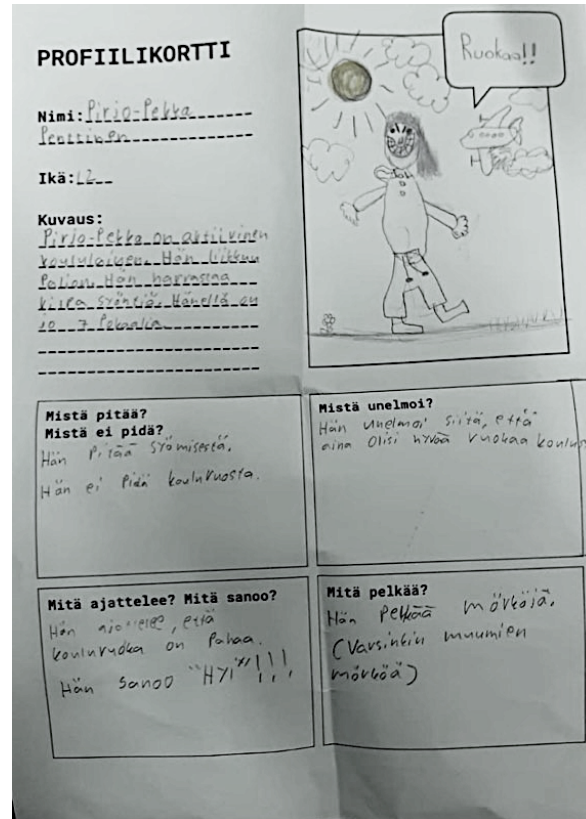 PROFIILIKORTTI
Ruokaa!!
Nimi: Pirjo-Pekka
Penttinen
Ikä: 12
Kuvaus:
Pirjo-Pekka on aktiivinen
koululainen. Hän liikkuu
Paljon. Hän harrastaa
kilpa syöntiä. Hänellä on
jo 7 Pokaalia
Mistä pitää?
Mistä ei pidä?
Hän Pitää syömisestä.
Hän ei Pidä kouluruosta.
Mistä unelmoi?
Hän unelmoi siitä, että
aina olisi hyvää ruokaa
Mitä ajattelee? Mitä sanoo?
Hän ajattelee, että
kouluruoka on Pahaa.
Hän sanoo "HYI"!!!
Mitä pelkää?
Hän Pelkää mörköjä.
(Varsinkin muumien
mörköä)